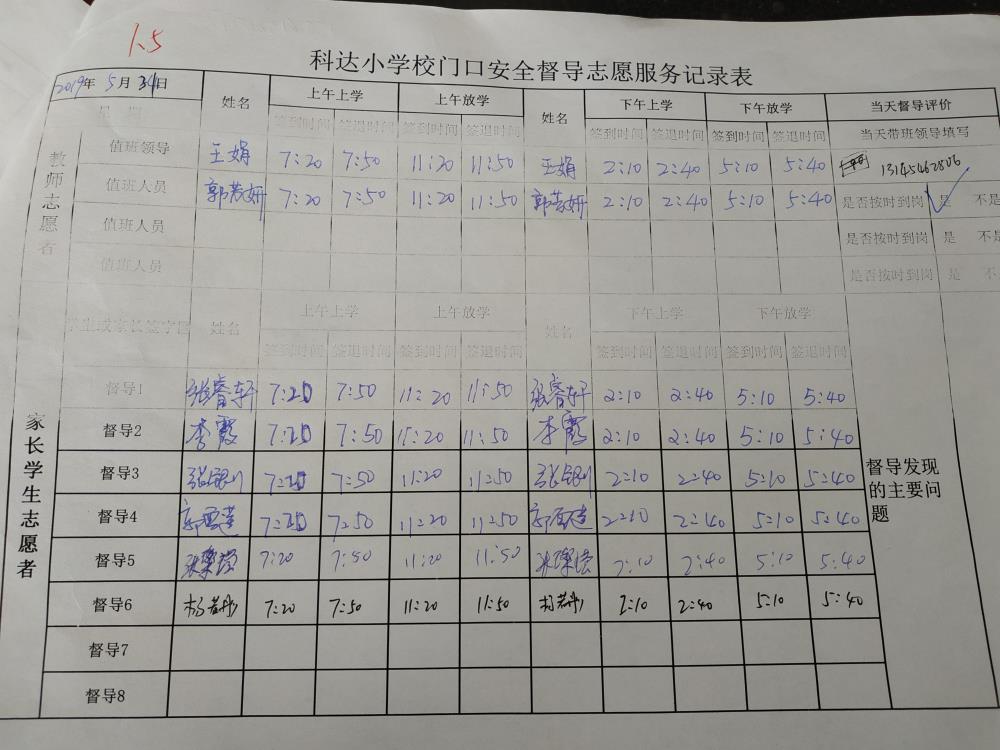 1.5
科达小学校门口安全督导志愿服务记录表
2019年 5月 31日 姓名 上午上学 上午放学 姓名 下午上学 下午放学 当天督导评价
星期 签到时间 签退时间 签到时间 签退时间 签到时间 签退时间 签到时间 签退时间 当天带班领导填写
教师志愿者
值班领导 王娟 7:20 7:50 11:20 11:50 王娟 2:10 2:40 5:10 5:40 13145462806
值班人员 郭慧妍 7:20 7:50 11:20 11:50 郭慧妍 2:10 2:40 5:10 5:40 是否按时到岗 是 不是
值班人员 是否按时到岗 是 不是
值班人员 是否按时到岗 是 不是
学生或家长签字区 姓名 上午上学 上午放学 姓名 下午上学 下午放学
签到时间 签退时间 签到时间 签退时间 签到时间 签退时间 签到时间 签退时间
家长学生志愿者
督导1 张睿轩 7:20 7:50 11:20 11:50 张睿轩 2:10 2:40 5:10 5:40
督导2 李霞 7:20 7:50 11:20 11:50 李霞 2:10 2:40 5:10 5:40
督导3 7:20 7:50 11:20 11:50 2:10 2:40 5:10 5:40
督导4 7:20 7:50 11:20 11:50 2:10 2:40 5:10 5:40
督导5 7:20 7:50 11:20 11:50 2:10 2:40 5:10 5:40
督导6 7:20 7:50 11:20 11:50 2:10 2:40 5:10 5:40
督导7
督导8
督导发现
的主要问
题